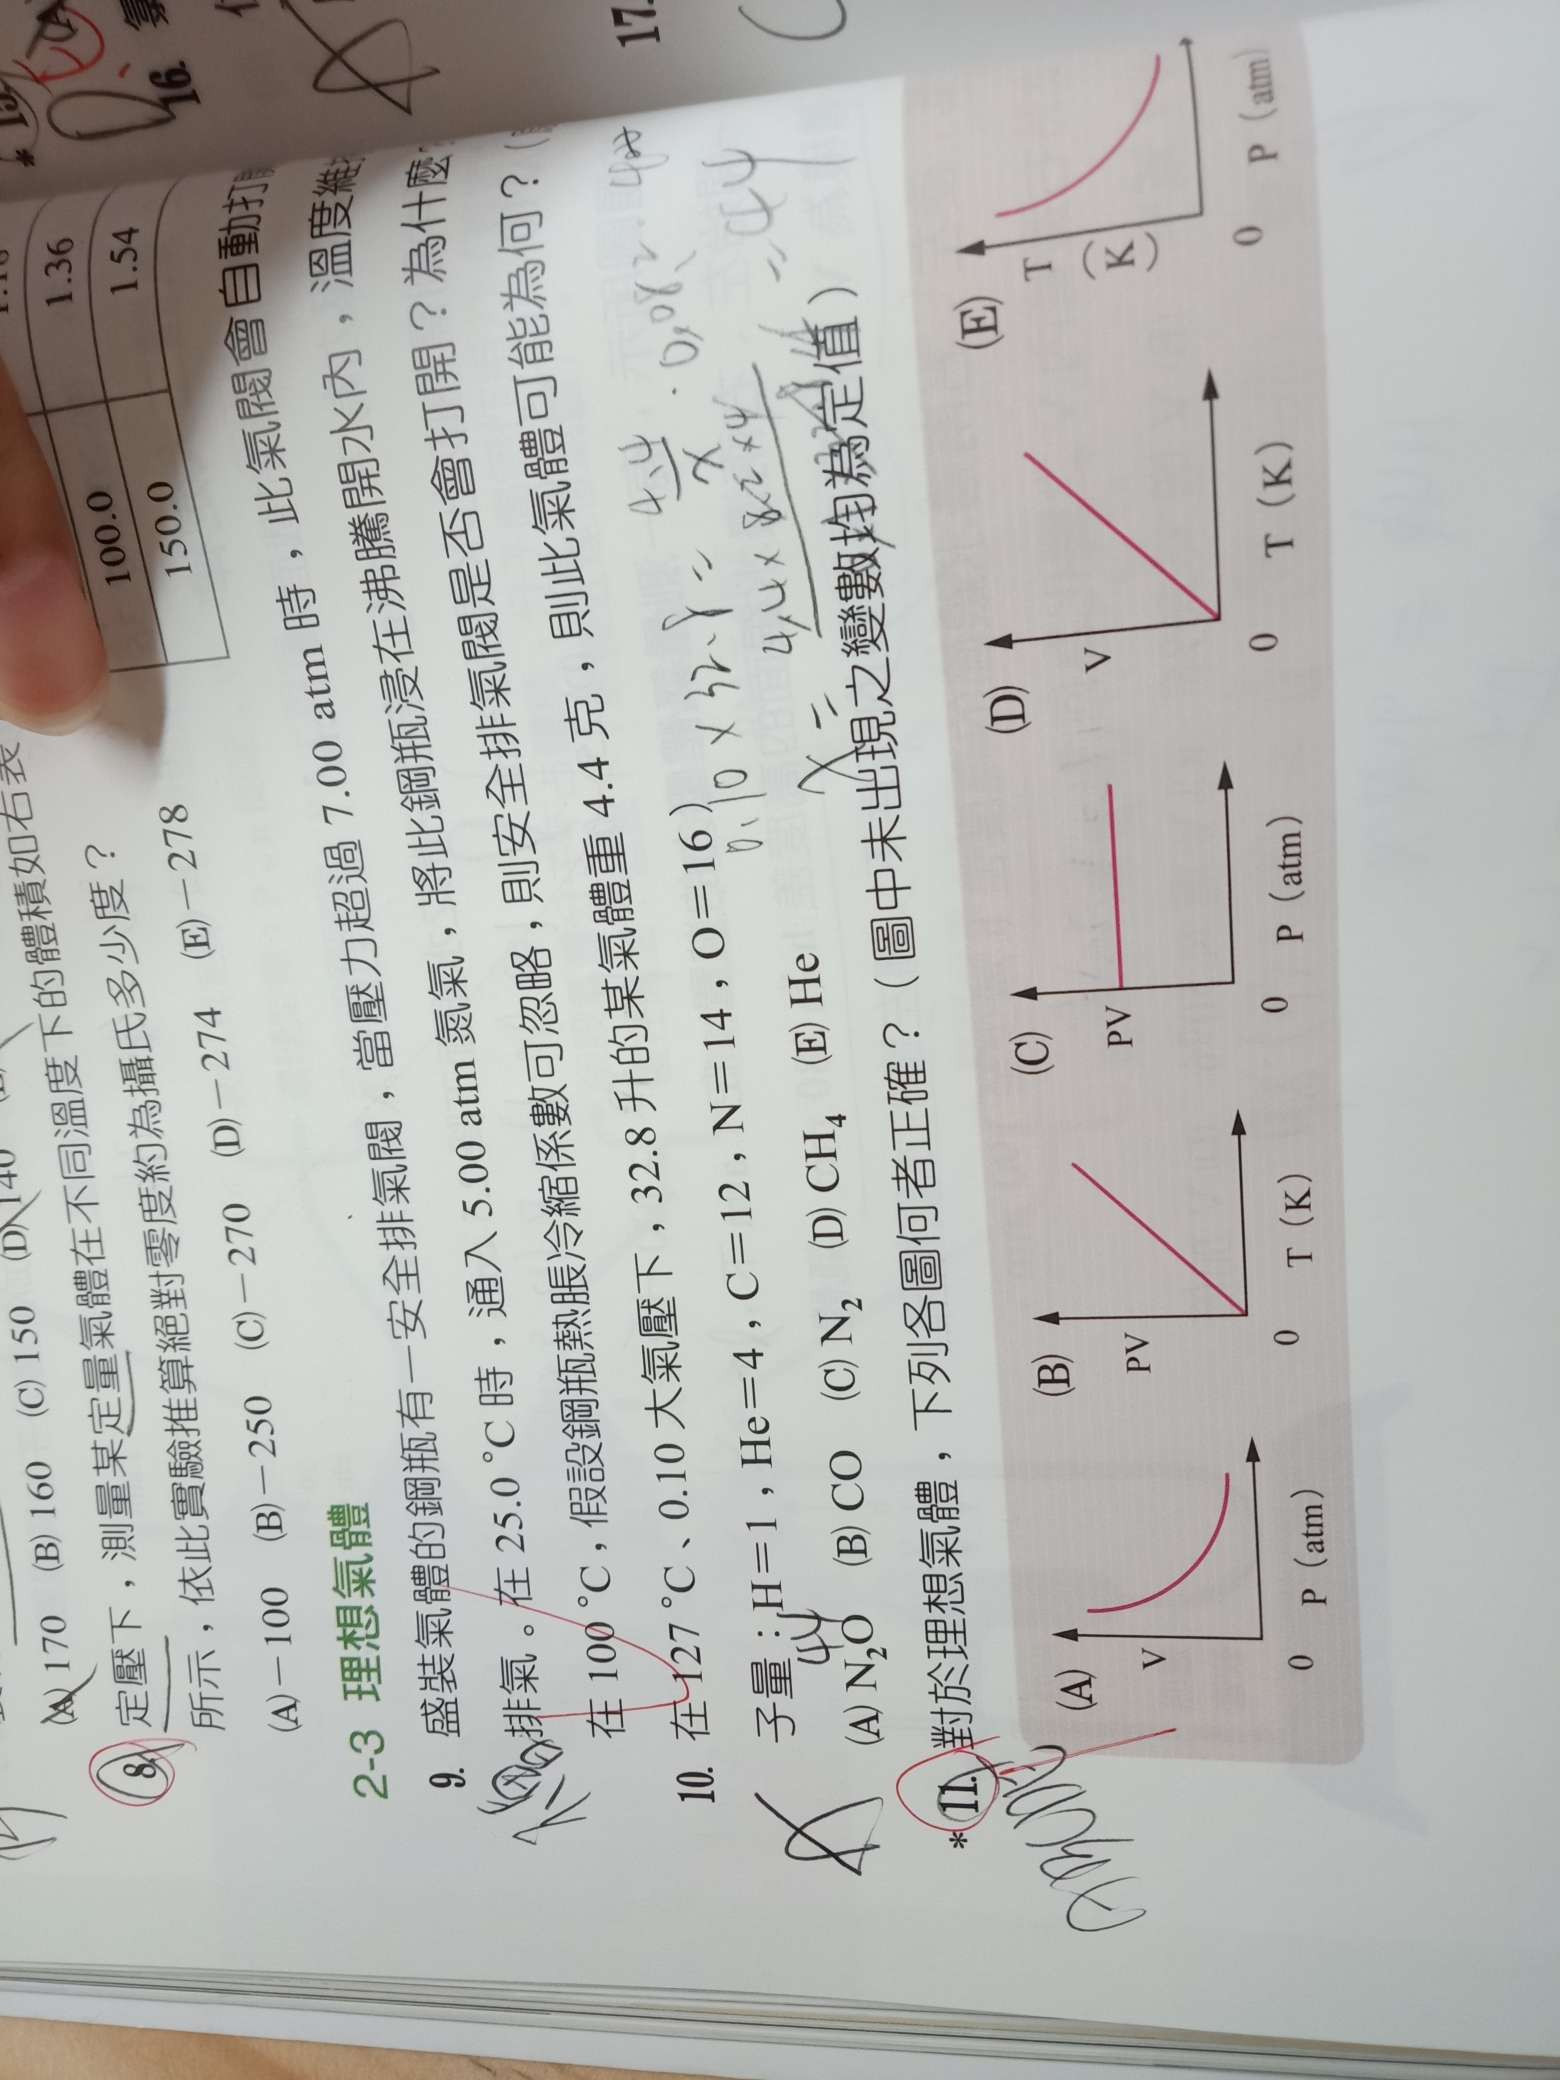 (A) 170 (B) 160 (C) 150 (D) 140
定壓下，測量某定量氣體在不同溫度下的體積如右表
8.
所示，依此實驗推算絕對零度約為攝氏多少度？
(A)－100 (B)－250 (C)－270 (D)－274 (E)－278
1.36
100.0 1.54
150.0
2-3 理想氣體
9. 盛裝氣體的鋼瓶有一安全排氣閥，當壓力超過 7.00 atm 時，此氣閥會自動打
排氣。在 25.0 °C 時，通入 5.00 atm 氮氣，將此鋼瓶浸在沸騰開水內，溫度維
在 100 °C，假設鋼瓶熱脹冷縮係數可忽略，則安全排氣閥是否會打開？為什麼
10. 在 127 °C、0.10 大氣壓下，32.8 升的某氣體重 4.4 克，則此氣體可能為何？（
子量：H＝1，He＝4，C＝12，N＝14，O＝16）
44
(A) N₂O (B) CO (C) N₂ (D) CH₄ (E) He
A
*11. 對於理想氣體，下列各圖何者正確？（圖中未出現之變數均為定值）
(A) V 0 P（atm）
(B) PV 0 T（K）
(C) PV 0 P（atm）
(D) V 0 T（K）
(E) T（K） 0 P（atm）
16.
17.